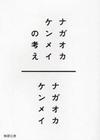 ナガオカ
ケンメイ
の考え
ナガオカ
ケンメイ